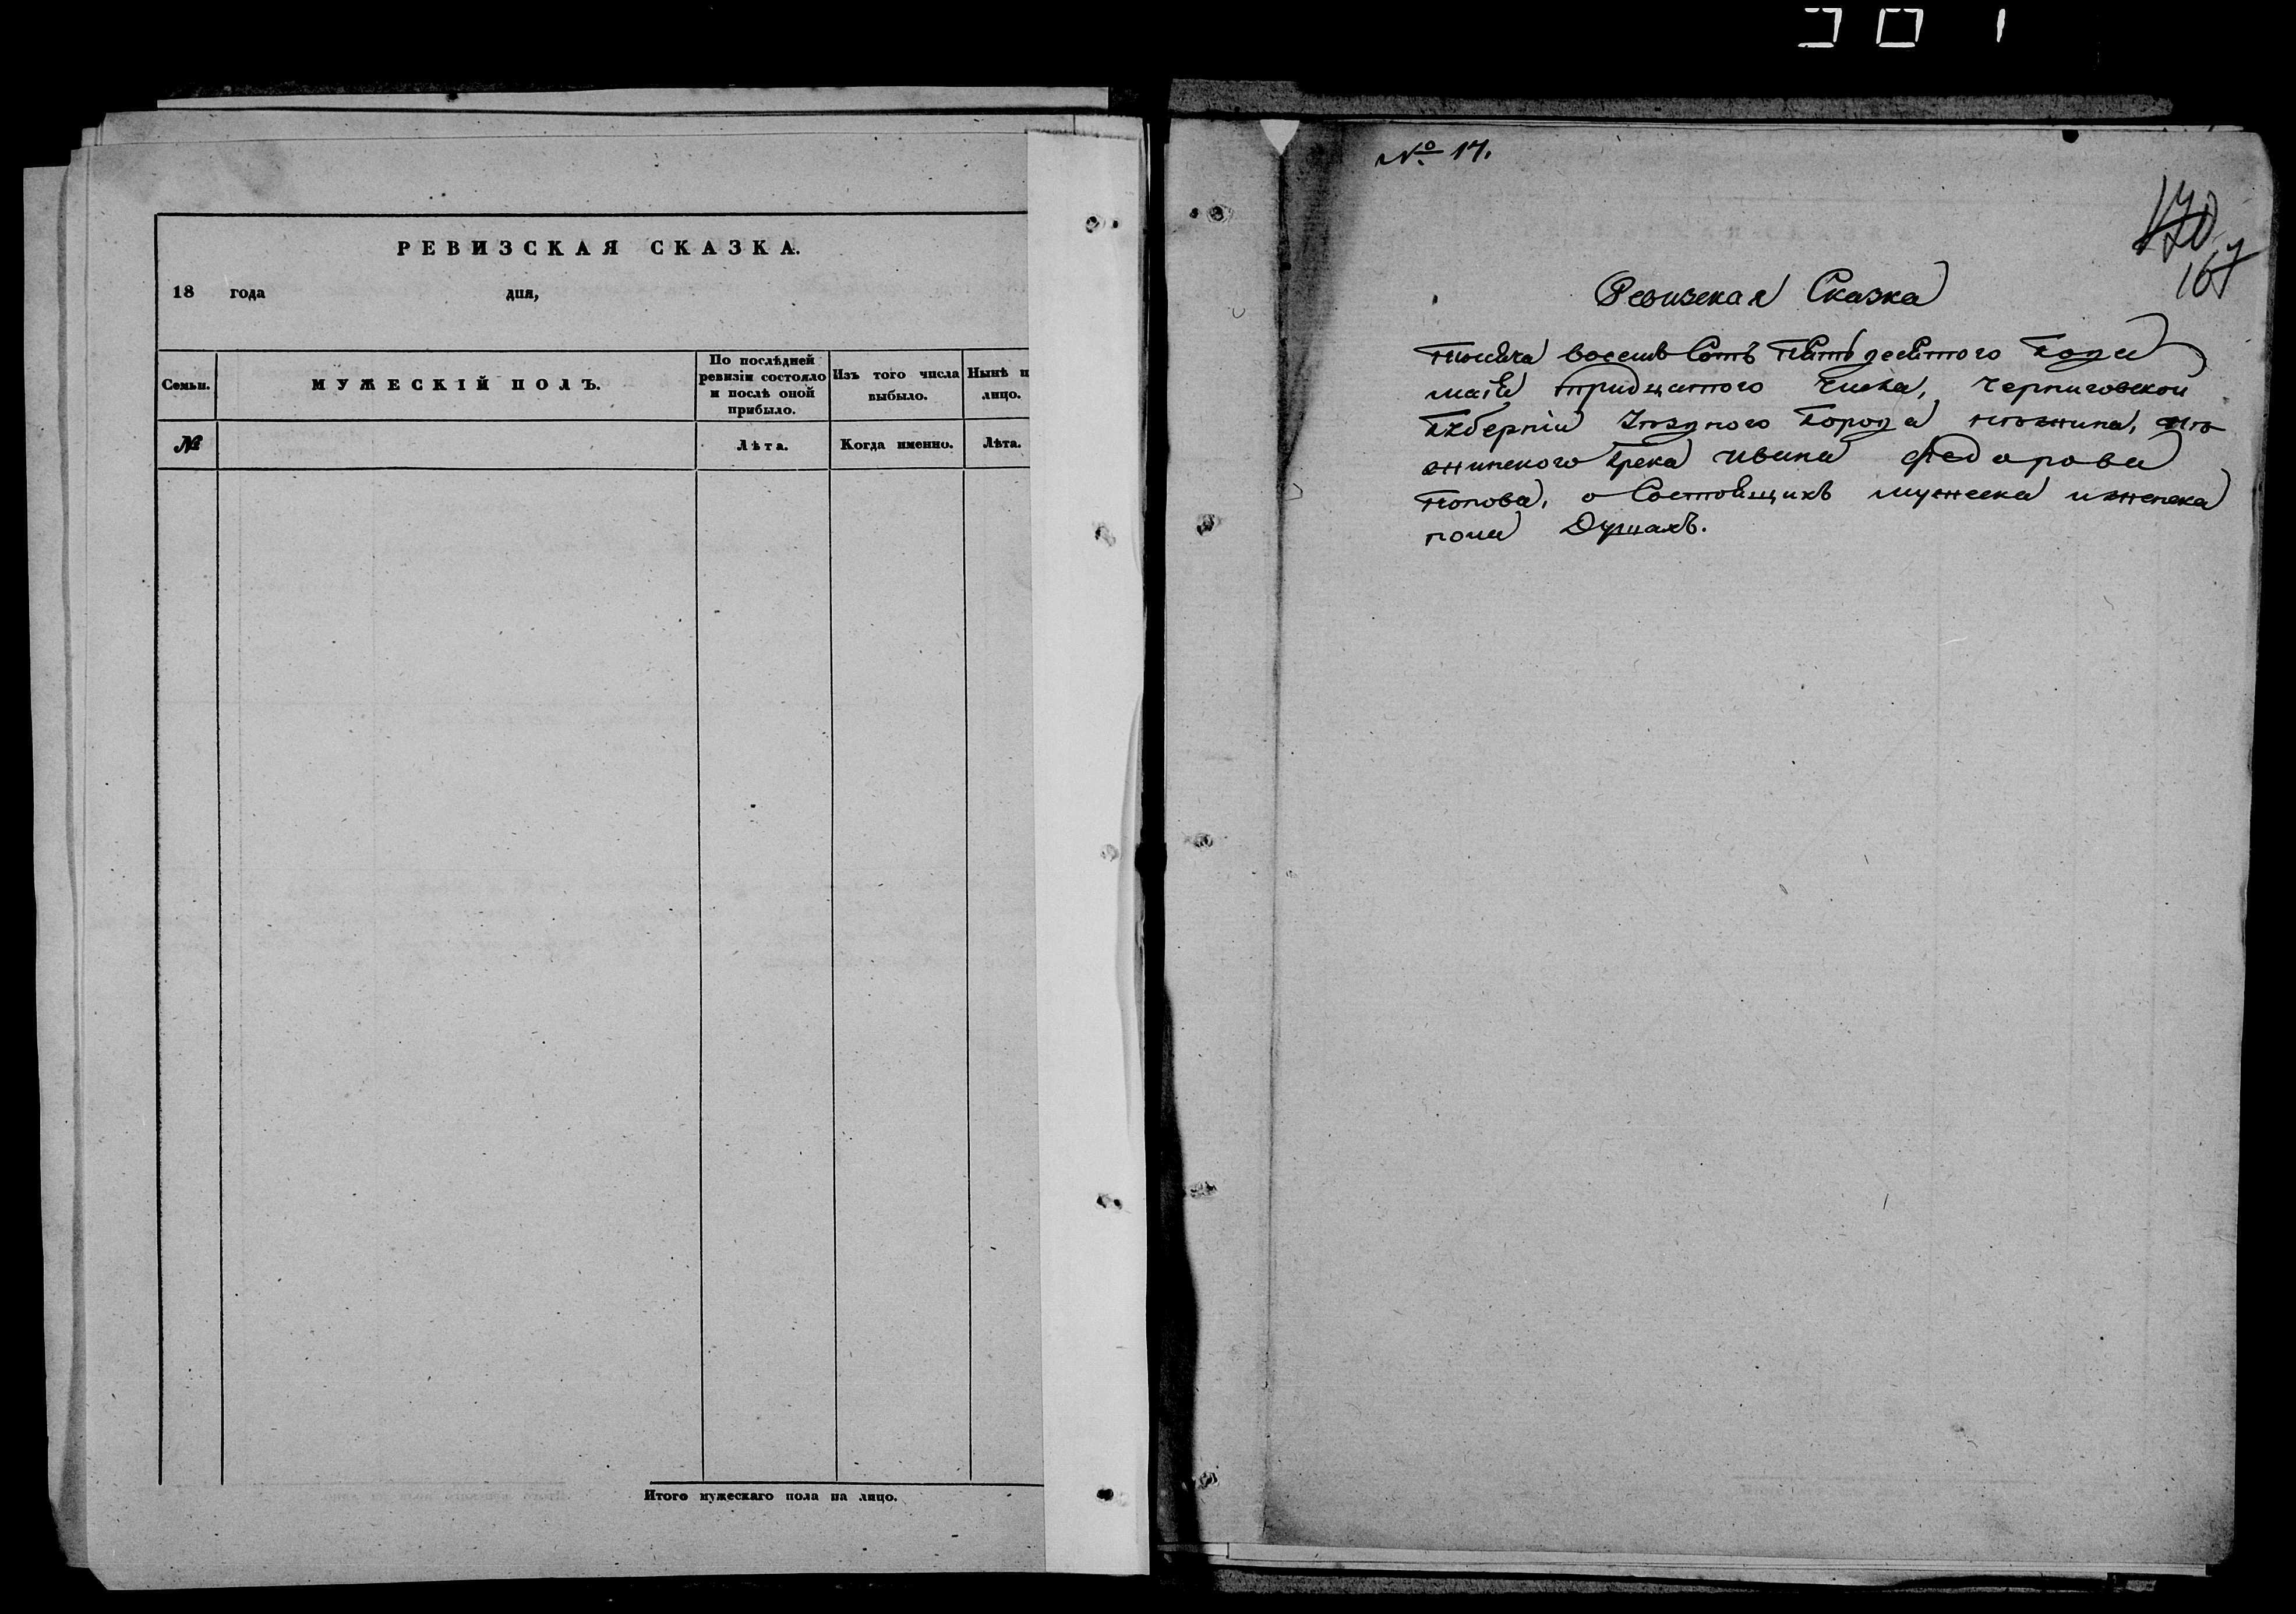 РЕВИЗСКАЯ СКАЗКА.
18 года дня,
Семьи.
МУЖЕСКІЙ ПОЛЪ.
По послѣдней
ревизіи состояло
и послѣ оной
прибыло.
Изъ того числа
выбыло.
Нынѣ н
лицо.
№
Лѣта.
Когда именно.
Лѣта.
Итого мужескаго пола на лицо.
№ 17.
170
167
Ревизская Сказка
тысяча восемь Сотъ пятьдесятого Года
маія тридцатого числа, Черниговской
Губерніи Уезднаго Города нѣжина, нѣ
жинского Грека ивана Федорова
попова, о Состоящихъ мужеска и женска
пола Душахъ.